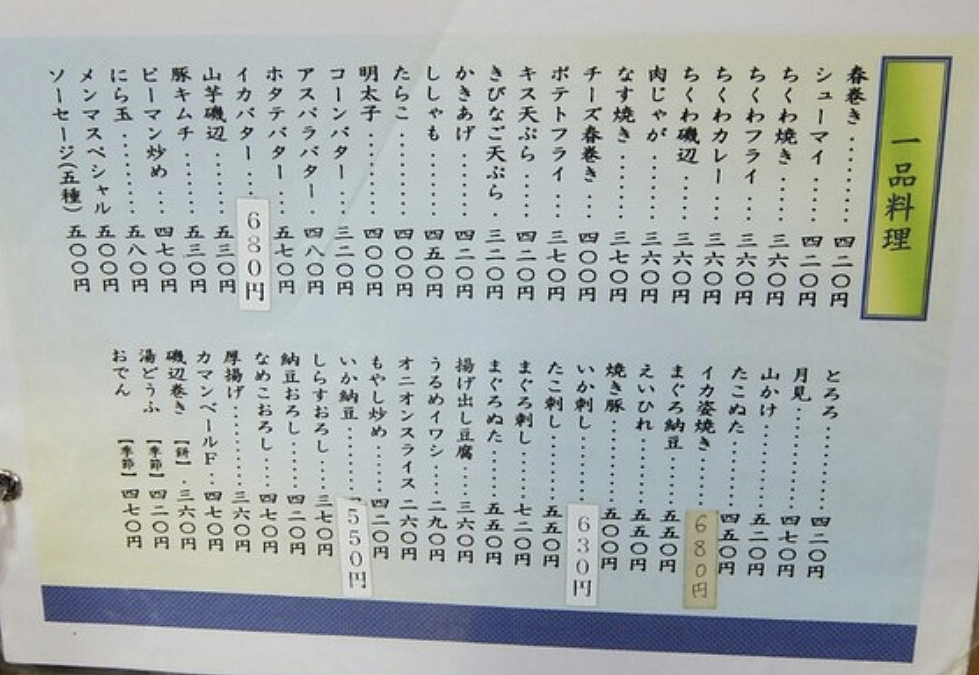 一品料理
春巻き………四二〇円
シューマイ……四二〇円
ちくわ焼き……三六〇円
ちくわフライ…三六〇円
ちくわカレー…三六〇円
ちくわ磯辺……三六〇円
肉じゃが………三六〇円
なす焼き………三七〇円
チーズ春巻き…四〇〇円
ポテトフライ…三七〇円
キス天ぷら……四二〇円
きびなご天ぷら.三二〇円
かきあげ………四二〇円
ししゃも………四五〇円
たらこ…………四〇〇円
明太子…………四〇〇円
コーンバター…三二〇円
アスパラバター.四八〇円
ホタテバター…五七〇円
イカバター…680円
山芋磯辺………五三〇円
豚キムチ………五三〇円
ピーマン炒め…四七〇円
にら玉…………五八〇円
メンマスペシャル五〇〇円
ソーセージ(五種)五〇〇円
とろろ…………四二〇円
月見……………四七〇円
山かけ…………五二〇円
たこぬた………四五〇円
イカ姿焼き……680円
まぐろ納豆……五五〇円
えいひれ………五五〇円
焼き豚…………五〇〇円
いか刺し………630円
たこ刺し………五五〇円
まぐろ刺し……七二〇円
まぐろぬた……五五〇円
揚げ出し豆腐…三六〇円
うるめイワシ…二九〇円
オニオンスライス二六〇円
もやし炒め……四二〇円
いか納豆………550円
しらすおろし…三七〇円
納豆おろし……四二〇円
なめこおろし…四七〇円
厚揚げ…………三六〇円
カマンベールF…四七〇円
磯辺巻き【餅】.三六〇円
湯どうふ【季節】四二〇円
おでん【季節】四七〇円